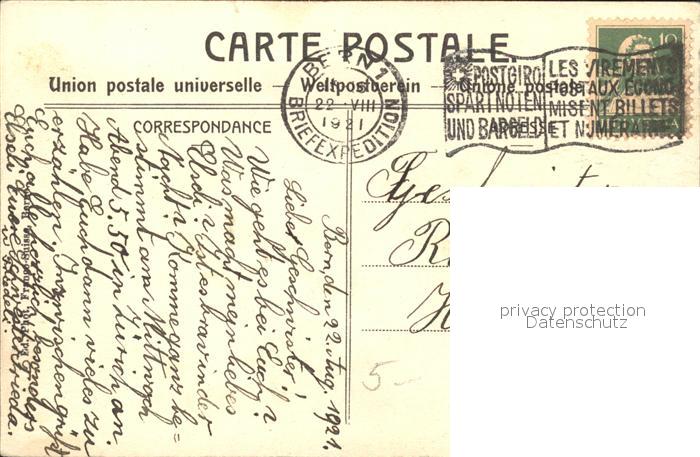 CARTE POSTALE.
Union postale universelle — Weltpostverein — Unione postale
CORRESPONDANCE
BERN 1
22 VIII
1921
BRIEFEXPEDITION
POSTGIRO
SPART NOTEN
UND BARGELD
LES VIREMENTS
POSTAUX ÉCONO-
MISENT BILLETS
ET NUMÉRAIRE
10
Bern, den 22. Aug. 1921.
Liebe Geschwister!
Wie geht es bei Euch?
Was macht mein liebes
Ist es brav in der
Nacht? Komme ganz be=
stimmt am Mittwoch
Abend 5.50 in Zürich an.
Habe Euch dann vieles zu
erzählen. Inzwischen grüßt
Euch alle herzlich, besonders
Frieda.
5-
privacy protection
Datenschutz